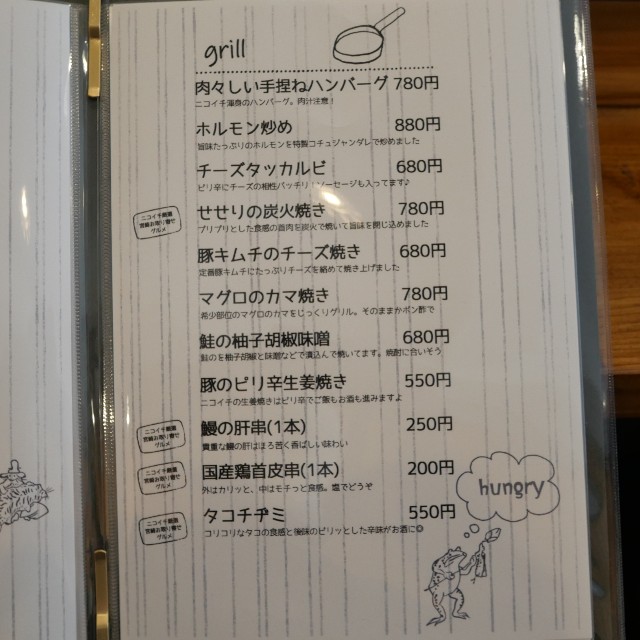 grill
肉々しい手捏ねハンバーグ 780円
ニコイチ渾身のハンバーグ。肉汁注意！
ホルモン炒め 880円
旨味たっぷりのホルモンを特製コチュジャンダレで炒めました
チーズタッカルビ 680円
ピリ辛にチーズの相性バッチリ！ソーセージも入ってます♪
ニコイチ厳選
宮崎お取り寄せ
グルメ
せせりの炭火焼き 780円
プリプリとした食感の首肉を炭火で焼いて旨味を閉じ込めました
豚キムチのチーズ焼き 680円
定番豚キムチにたっぷりチーズを絡めて焼き上げました
マグロのカマ焼き 780円
希少部位のマグロのカマをじっくりグリル。そのままかポン酢で
鮭の柚子胡椒味噌 680円
鮭のを柚子胡椒と味噌などで漬込んで焼いてます。焼酎に合いそう
豚のピリ辛生姜焼き 550円
ニコイチの生姜焼きはピリ辛でご飯もお酒も進みますよ
ニコイチ厳選
宮崎お取り寄せ
グルメ
鰻の肝串(1本) 250円
貴重な鰻の肝はほろ苦く香ばしい味わい
ニコイチ厳選
宮崎お取り寄せ
グルメ
国産鶏首皮串(1本) 200円
外はカリッと、中はモチっと食感。塩でどうぞ
ニコイチ厳選
宮崎お取り寄せ
グルメ
タコチヂミ 550円
コリコリなタコの食感と後味のピリッとした辛味がお酒に◎
hungry